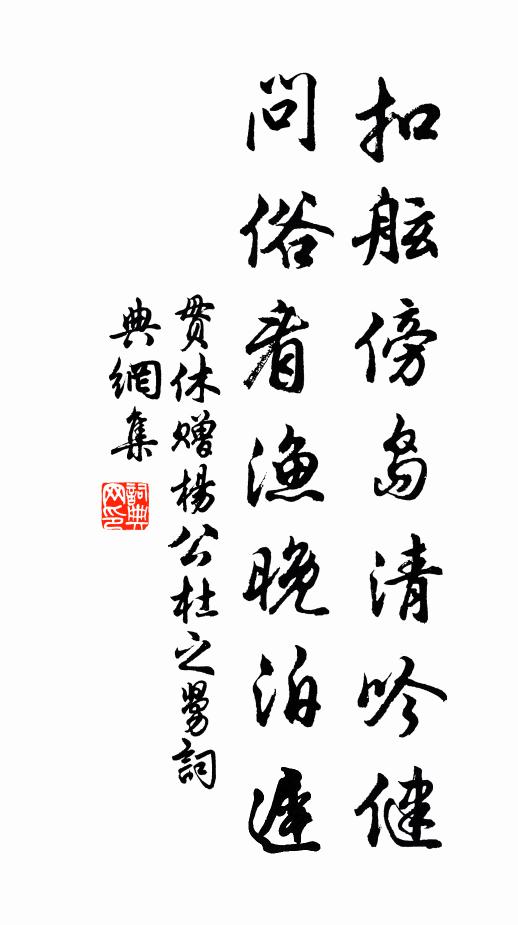 扣舷傍島清吟健
問俗看漁晚泊遲
貫休贈楊公杜之舅詞
典網集
詞典
网印